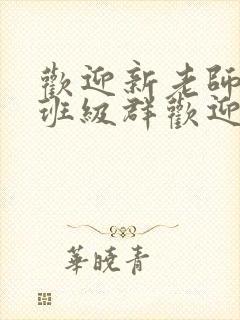 歡迎新老師
班級群歡迎
華曉青